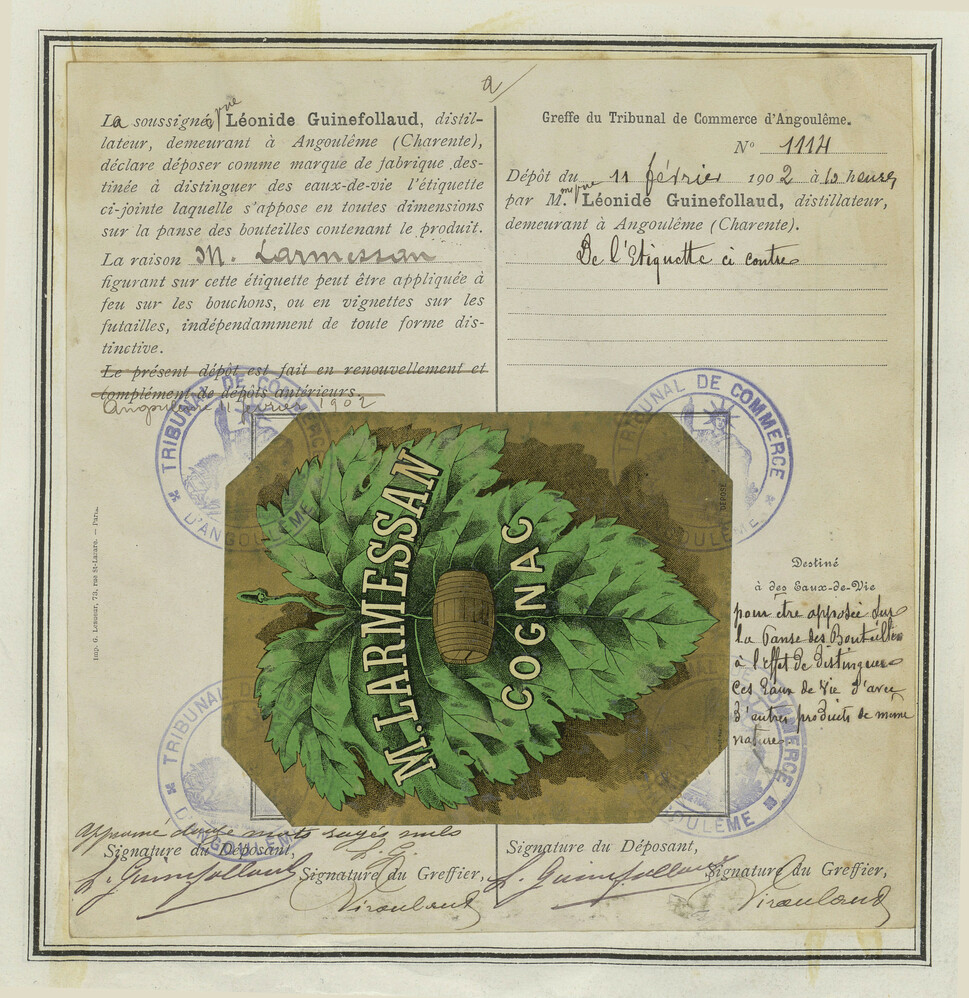 a
La soussignée, Vve Léonide Guinefollaud, distil-
lateur, demeurant à Angoulême (Charente),
déclare déposer comme marque de fabrique des-
tinée à distinguer des eaux-de-vie l'étiquette
ci-jointe laquelle s'appose en toutes dimensions
sur la panse des bouteilles contenant le produit.
La raison M. Larmessan
figurant sur cette étiquette peut être appliquée à
feu sur les bouchons, ou en vignettes sur les
futailles, indépendamment de toute forme dis-
tinctive.
Le présent dépôt est fait en renouvellement et
complément de dépôts antérieurs.
Angoulême 11 février 1902
Greffe du Tribunal de Commerce d'Angoulême.
No 1114
Dépôt du 11 février 1902 à 10 heures
par Mme Vve Léonide Guinefollaud, distillateur,
demeurant à Angoulême (Charente).
De l'Etiquette ci contre
TRIBUNAL DE COMMERCE
D'ANGOULÊME
TRIBUNAL DE COMMERCE
D'ANGOULÊME
M. LARMESSAN
COGNAC
DÉPOSÉ
Imp. G. Lesueur, 73, rue St-Lazare. — Paris.
Destiné
à des Eaux-de-Vie
pour être apposée sur
la Panse des Bouteilles
à l'effet de distinguer
ces Eaux de Vie d'avec
d'autres produits de même
nature
TRIBUNAL
D'ANGOULÊME
COMMERCE
D'ANGOULÊME
approuvé douze mots rayés nuls
L. G.
Signature du Déposant,
L. Guinefollaud
Signature du Greffier,
Signature du Déposant,
L. Guinefollaud
Signature du Greffier,